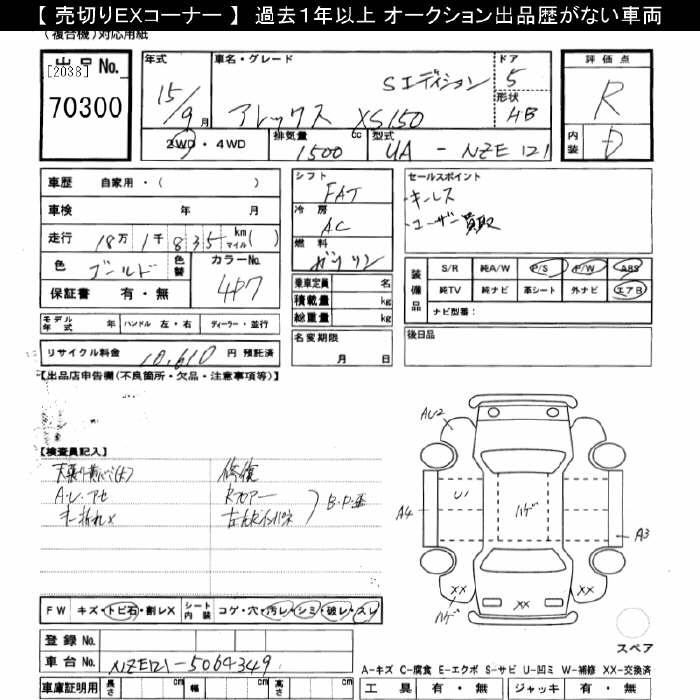 【 売切りEXコーナー 】 過去1年以上 オークション出品歴がない車両
(複合機)対応用紙
出品No.
[2038]
70300
年式
15/9 月
車名・グレード
Sエディション
アレックス XS150
ドア
5
形状
HB
評価点
R
内装
D
2WD・4WD
排気量
1500 cc
型式
UA - NZE121
車歴 自家用・( )
車検 年 月
走行 18万 1千 835 km マイル ( )
色 ゴールド 色替
カラーNo.
4P7
保証書 有・無
シフト
FAT
冷房
AC
燃料
ガソリン
乗車定員 名
積載量 kg
総重量 kg
セールスポイント
・キーレス
・ユーザー買取
装備品
S/R 純A/W P/S P/W ABS
純TV 純ナビ 革シート 外ナビ エアB
ナビ型番：
モデル年式 年 ハンドル 左・右 ディーラー・並行
名変期限
月 日
後日品
リサイクル料金 10,610 円 預託済
【出品店申告欄(不良箇所・欠品・注意事項等)】
【検査員記入】
修復
A・U・アセ
Rフロアー
B・P・歪
AU2
A4
U1
ハゲ
A3
XX
XX
XX
ハゲ
スペア
FW キズ・トビ石・割レX シート内装 コゲ・穴・汚レ・シミ・破レ・スレ
登録No.
車台No. NZE121-5064349
車庫証明用 長さ cm 幅 cm 高さ cm
A－キズ C－腐食 E－エクボ S－サビ U－凹ミ W－補修 XX－交換済
工具 有・無 ジャッキ 有・無